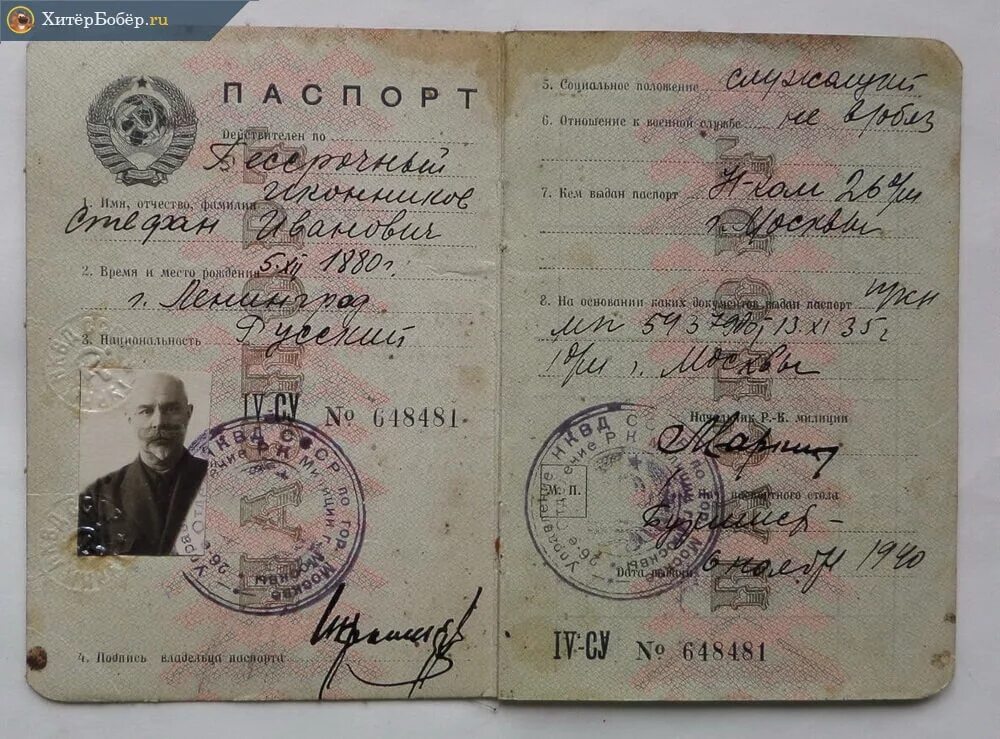 ХитёрБобёр.ru
ПАСПОРТ
Действителен по
Бессрочный
Иконников
1. Имя, отчество, фамилия
Стефан Иванович
2. Время и место рождения 5.XII 1880г.
г. Ленинград
3. Национальность Русский
IV-СУ № 648481
Управление НКВД СССР по гор. Москве
26-е Отделение Р К Милиции г. Москвы
4. Подпись владельца паспорта
5. Социальное положение служащий
6. Отношение к военной службе не в/обяз
7. Кем выдан паспорт 26 о/м
г. Москвы
8. На основании каких документов выдан паспорт
МП 13 XI 35 г
1 о/м г. Москвы
Начальник Р.-К. милиции
М. П.
Нач. паспортного стола
Дата выдачи 6 ноября 1940
Управление НКВД СССР по гор. Москве
26-е Отделение Р К Милиции г. Москвы
IV-СУ № 648481